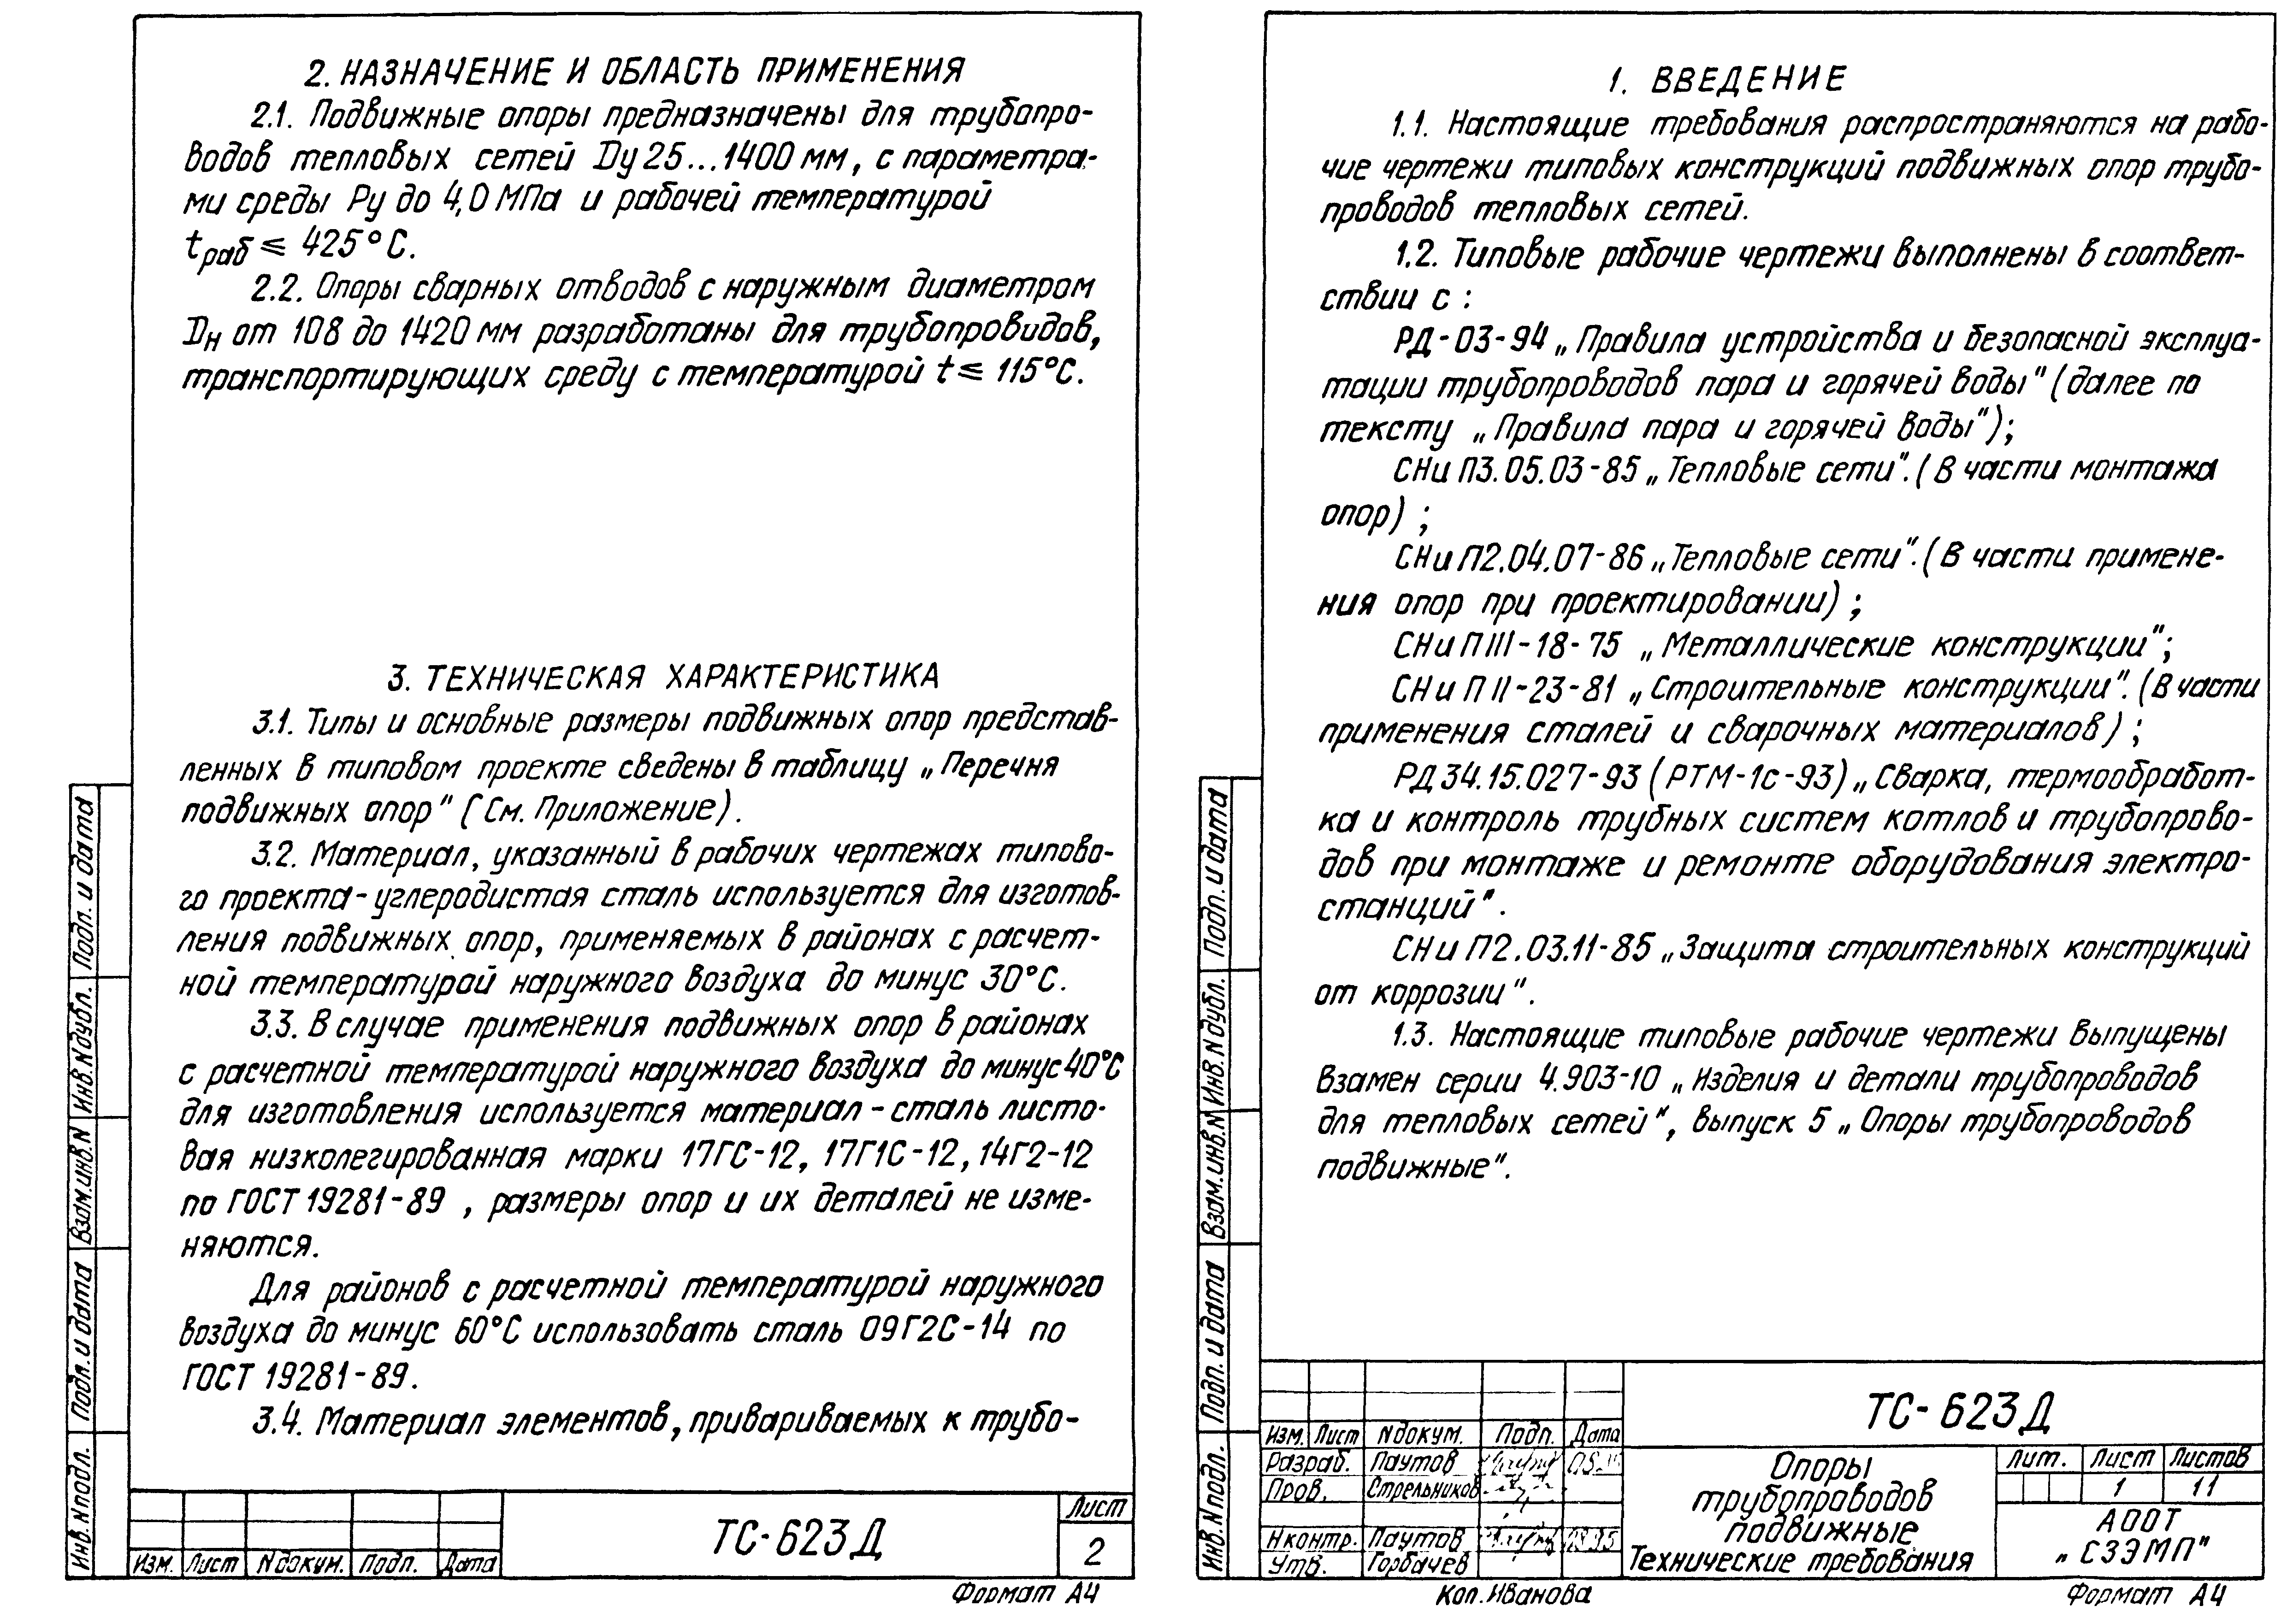 2. НАЗНАЧЕНИЕ И ОБЛАСТЬ ПРИМЕНЕНИЯ
2.1. Подвижные опоры предназначены для трубопро-
водов тепловых сетей Dу 25...1400 мм, с параметра-
ми среды Pу до 4,0 МПа и рабочей температурой
tраб ≤ 425°C.
2.2. Опоры сварных отводов с наружным диаметром
Dн от 108 до 1420 мм разработаны для трубопровидов,
транспортирующих среду с температурой t ≤ 115°C.
3. ТЕХНИЧЕСКАЯ ХАРАКТЕРИСТИКА
3.1. Типы и основные размеры подвижных опор представ-
ленных в типовом проекте сведены в таблицу „Перечня
подвижных опор" (См. Приложение).
3.2. Материал, указанный в рабочих чертежах типово-
го проекта - углеродистая сталь используется для изготов-
ления подвижных опор, применяемых в районах с расчет-
ной температурой наружного воздуха до минус 30°C.
3.3. В случае применения подвижных опор в районах
с расчетной температурой наружного воздуха до минус 40°C
для изготовления используется материал - сталь листо-
вая низколегированная марки 17ГС-12, 17Г1С-12, 14Г2-12
по ГОСТ 19281-89 , размеры опор и их деталей не изме-
няются.
Для районов с расчетной температурой наружного
воздуха до минус 60°C использовать сталь 09Г2С-14 по
ГОСТ 19281-89.
3.4. Материал элементов, привариваемых к трубо-
Подп. и дата
Инв. N дубл.
Взам. инв. N
Подп. и дата
Инв. N подл.
Изм. Лист N докум. Подп. Дата
ТС-623Д
Лист
2
Формат А4
1. ВВЕДЕНИЕ
1.1. Настоящие требования распространяются на рабо-
чие чертежи типовых конструкций подвижных опор трубо-
проводов тепловых сетей.
1.2. Типовые рабочие чертежи выполнены в соответ-
ствии с :
РД-03-94 „Правила устройства и безопасной эксплуа-
тации трубопроводов пара и горячей воды" (далее по
тексту „Правила пара и горячей воды");
СНиП3.05.03-85 „Тепловые сети". (В части монтажа
опор) ;
СНиП2.04.07-86 „Тепловые сети". (В части примене-
ния опор при проектировании) ;
СНиПIII-18-75 „Металлические конструкции";
СНиПII-23-81 „Строительные конструкции". (В части
применения сталей и сварочных материалов) ;
РД34.15.027-93 (РТМ-1с-93) „Сварка, термообработ-
ка и контроль трубных систем котлов и трубопрово-
дов при монтаже и ремонте оборудования электро-
станций".
СНиП2.03.11-85 „Защита строительных конструкций
от коррозии".
1.3. Настоящие типовые рабочие чертежи выпущены
взамен серии 4.903-10 „Изделия и детали трубопроводов
для тепловых сетей", выпуск 5 „Опоры трубопроводов
подвижные".
Подп. и дата
Инв. N дубл.
Взам. инв. N
Подп. и дата
Инв. N подл.
ТС-623Д
Изм. Лист N докум. Подп. Дата
Разраб. Паутов
Пров. Стрельников
Н контр. Паутов
Утв. Горбачев
Опоры
трубопроводов
подвижные
Технические требования
Лит. Лист Листов
1 11
АООТ
„СЗЭМП"
Коп. Иванова
Формат А4